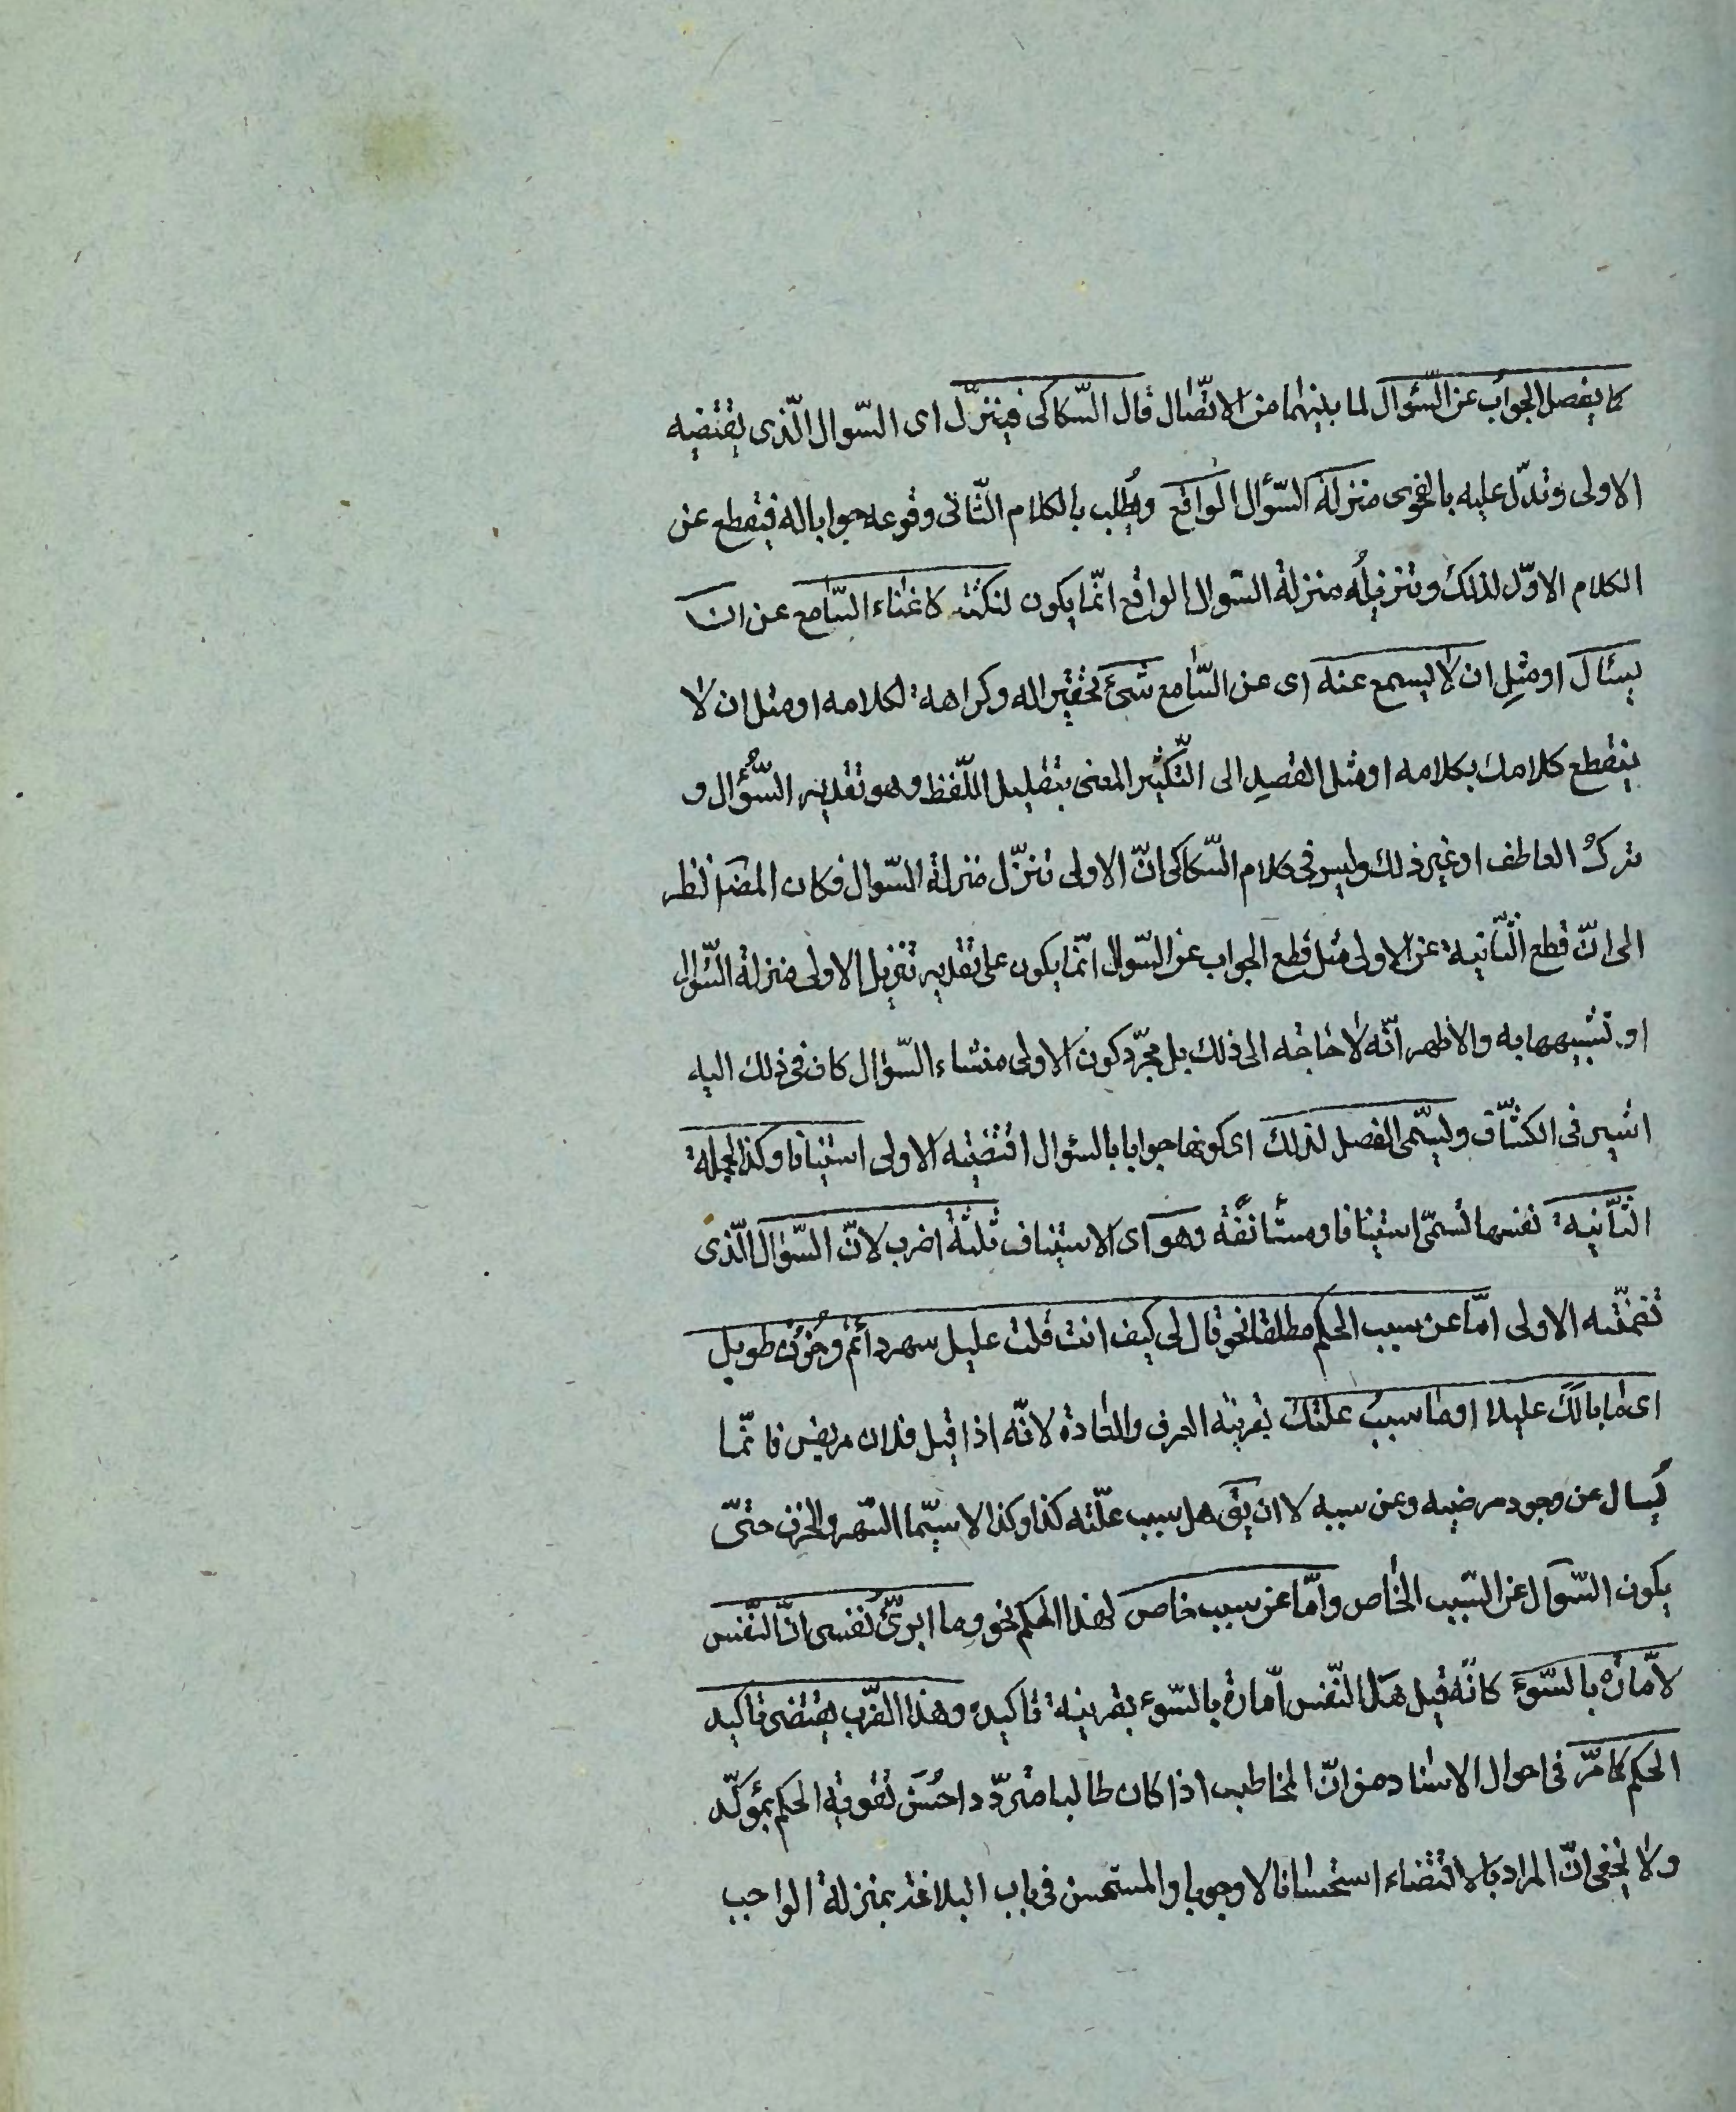 كما يفصل الجواب عن السّؤال لما بينهما من الاتّصال قال السّكاكى فينزّل اى السّوال الّذى يقتضيه
الاولى وتدلّ عليه بالفحوى منزلة السّؤال الواقع ويُطلب بالكلام الثّانى وقوعه جوابا له فيقطع عن
الكلام الاوّل لذلك وتنزيلُه منزلة السّوال الواقع انّما يكون لنكتة كاغناء السّامع عن ان
يسئال او مثلِ ان لا يسمع عنه اى عن السّامع شئ تحقيرا له وكراهة لكلامه او مثل ان لا
ينقطع كلامك بكلامه او مثل القصدِ الى التّكثير المعنى بتقليل اللّفظ وهو تقدير السُّؤال و
تركُ العاطف او غير ذلك وليس فى كلام السّكاكى انّ الاولى تنزّل منزلة السّوال فكان المصَ نظر
الى انّ قطع الثّانية عن الاولى مثل قطع الجواب عن السّوال انّما يكون على تقدير تنزيل الاولى منزلة السّؤال
او تشبيهها به والاظهر انّه لا حاجة الى ذلك بل مجرّد كون الاولى منشاء السّؤال كاف فى ذلك اليه
اشير فى الكشّاف وليسمّى الفصل لذلك اى كونها جوابا بالسؤال اقتضيته الاولى استينافا وكذا الجملة
الثّانية نفسها تسمّى استينافا ومستأنفة وهو اى الاستيناف ثلثة اضرب لانّ السّؤال الّذى
تضمّنته الاولى امّا عن سبب الحكم مطلقا نحو قال لى كيف انت قلت عليل سهر دائمٌ وحُزنٌ طويل
اى ما بالكَ عليلا او ما سببُ علتك بقرينة العرف والعادة لانّه اذا قيل فلان مريض فانّما
يُسال عن وجود مرضه وعن سببه لا ان يقَ هل سبب علّته كذا وكذا لا سيّما السّهر والحزن حتّى
يكون السّوال عن السّبب الخاص وامّا عن سبب خاص لهذا الحكم نحو وما ابرّئُ نفسى انّ النّفس
لامّارة بالسّوء كانّه قيل هل النّفس امّارة بالسّوء بقرينة تاكيد وهذا الضّرب يقتضى تاكيد
الحكم كما مرّ فى احوال الاسناد من انّ المخاطب اذا كان طالبا متردّدا حسُن تقوية الحكم بمؤكّد
ولا يخفى انّ المراد بالاقتضاء استحسانا لا وجوبا والمستحسن فى باب البلاغة بمنزلة الواجب